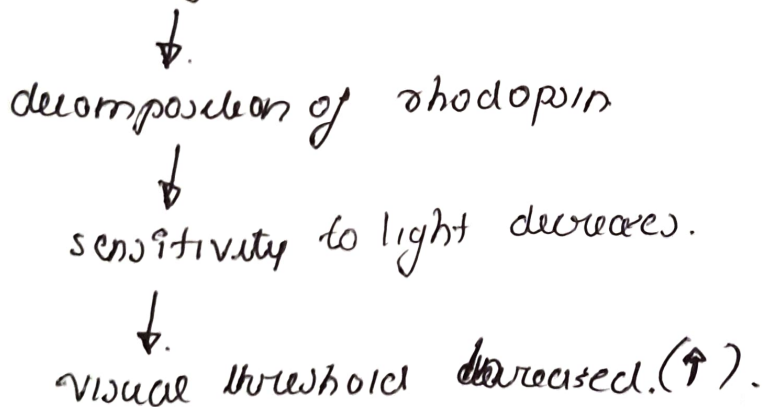 ↓
decomposition of rhodopsin
↓
sensitivity to light decreases.
↓
visual threshold (↑).